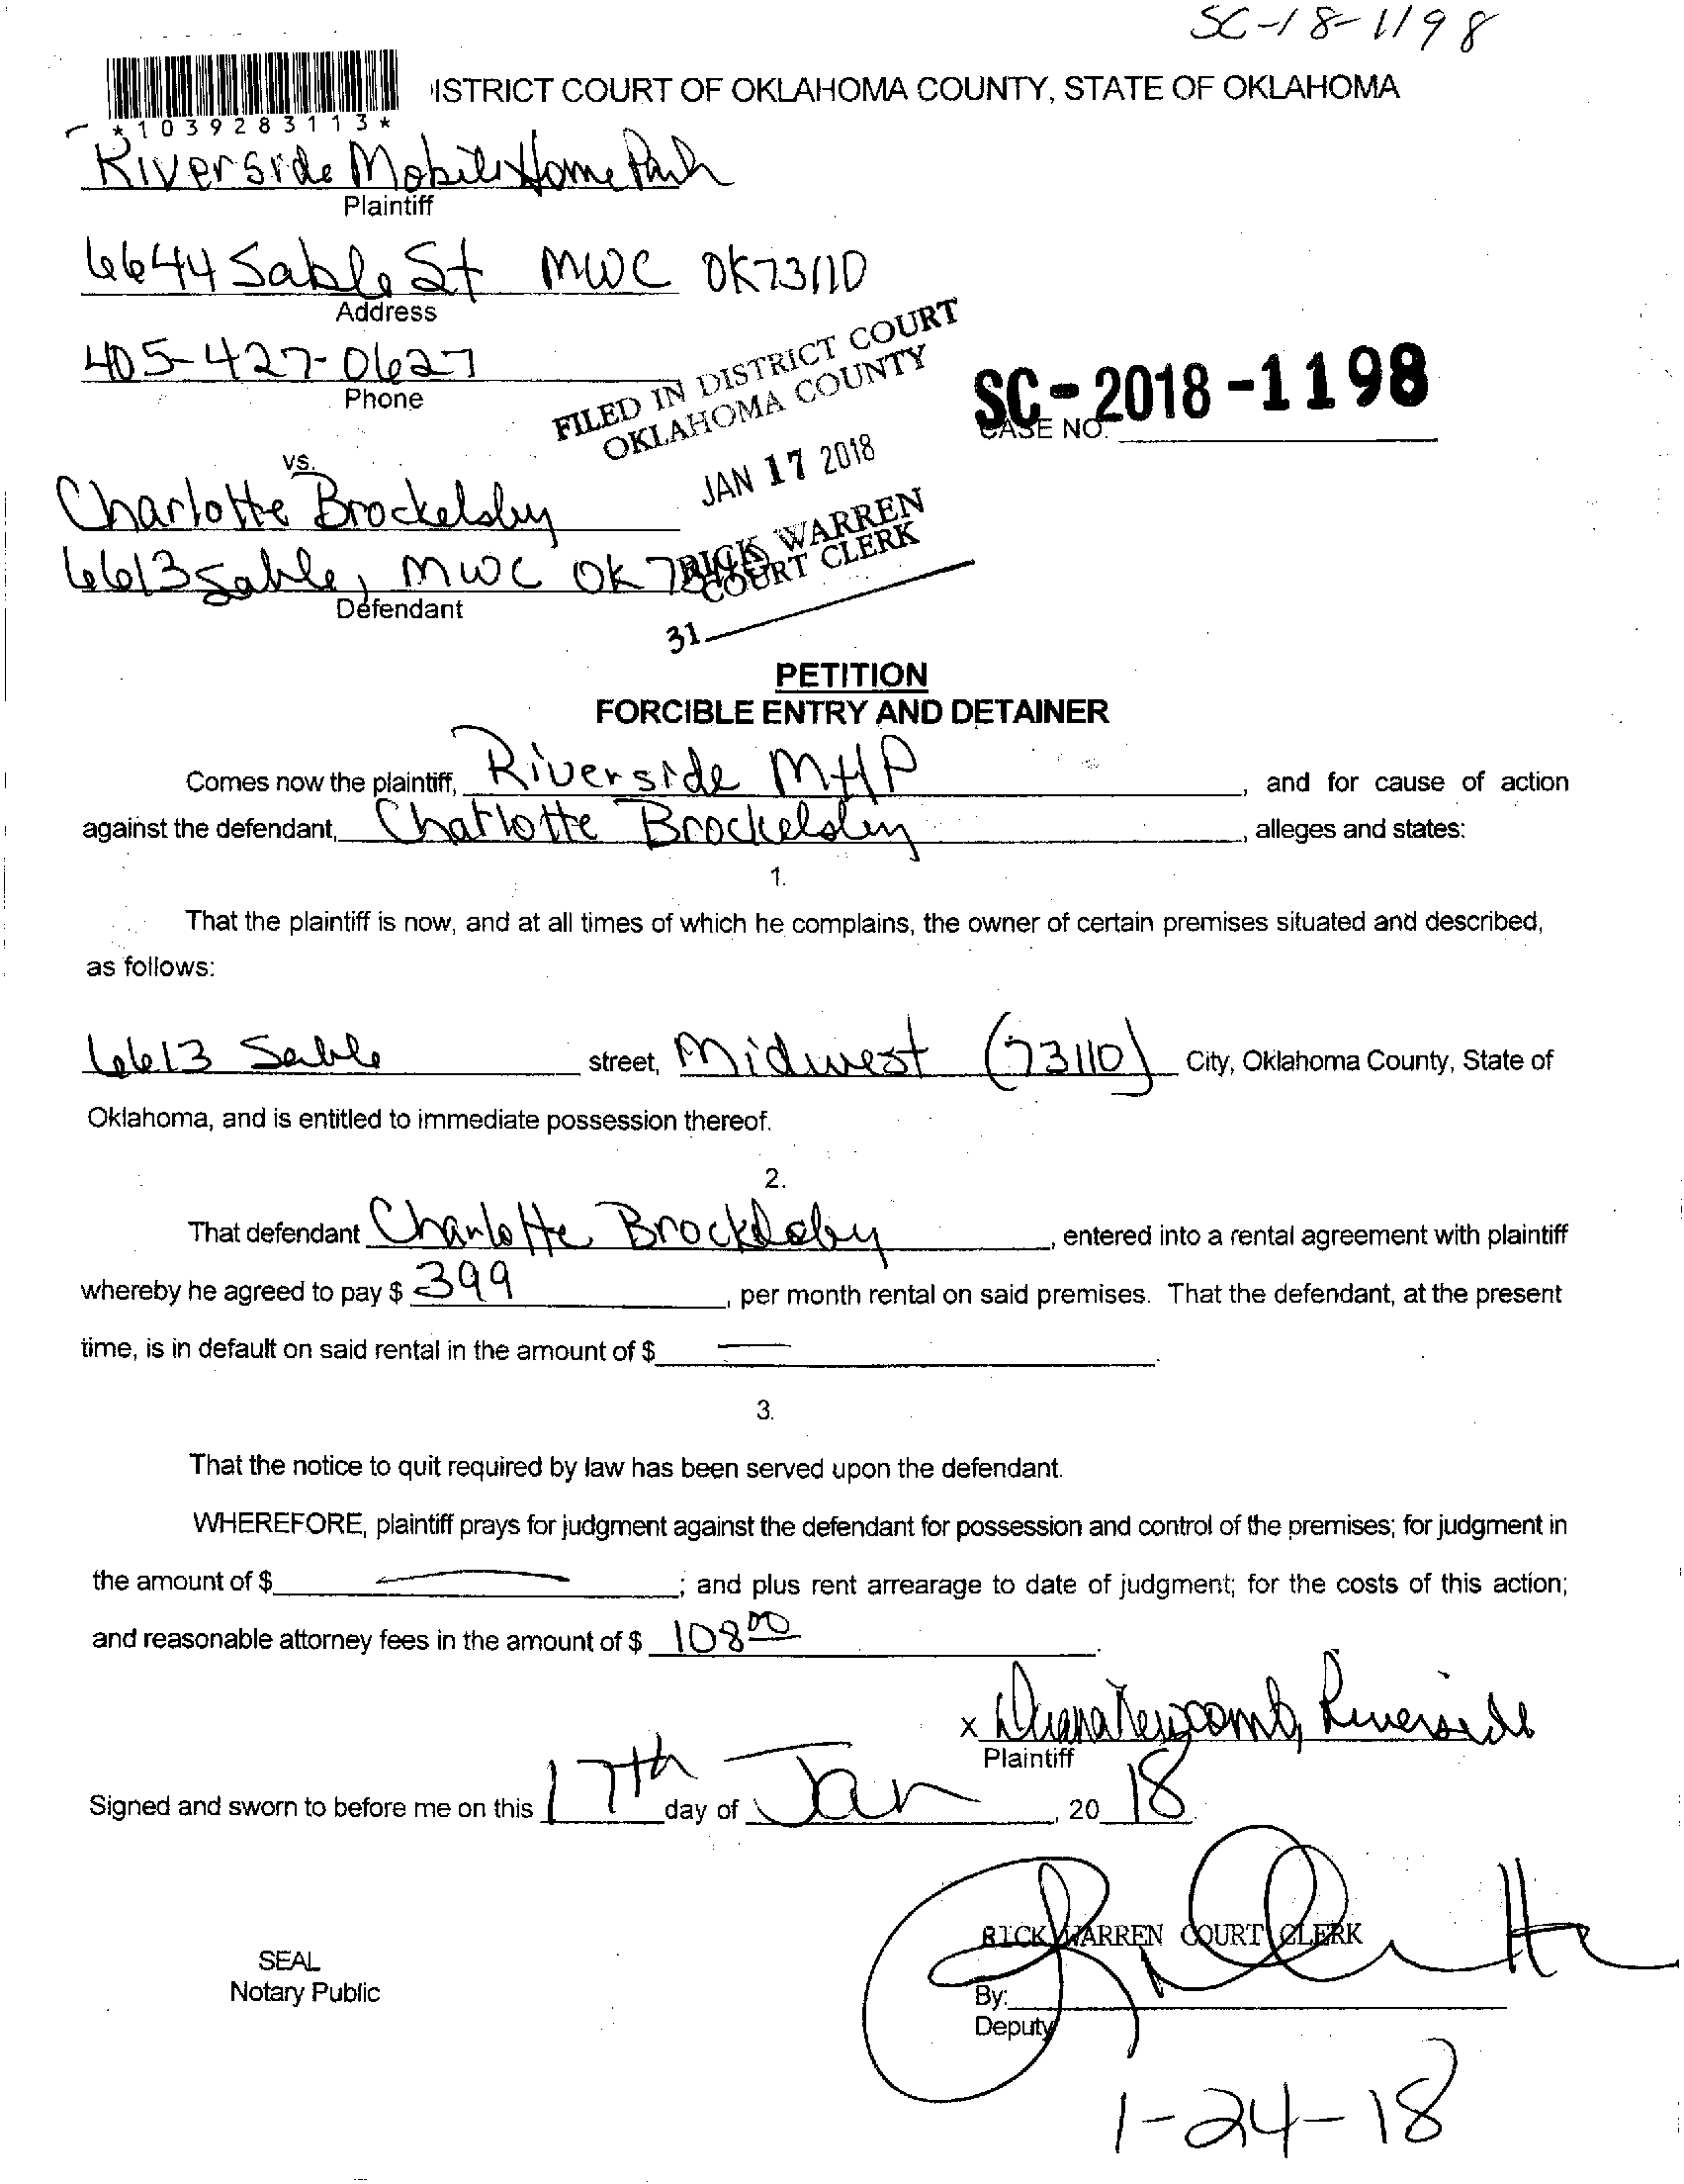 SC-18-1198
ISTRICT COURT OF OKLAHOMA COUNTY, STATE OF OKLAHOMA
*1039283113*
Riverside Mobile Home Park
Plaintiff
6644 Sable St MWC OK 73110
Address
405-427-0627
Phone
FILED IN DISTRICT COURT
OKLAHOMA COUNTY
JAN 17 2018
RICK WARREN
COURT CLERK
31
SC-2018-1198
CASE NO.
vs.
Charlotte Brockelsby
6613 Sable, MWC OK
Defendant
PETITION
FORCIBLE ENTRY AND DETAINER
Comes now the plaintiff, Riverside MHP, and for cause of action
against the defendant, Charlotte Brockelsby, alleges and states:
1.
That the plaintiff is now, and at all times of which he complains, the owner of certain premises situated and described,
as follows:
6613 Sable street, Midwest (73110) City, Oklahoma County, State of
Oklahoma, and is entitled to immediate possession thereof.
2.
That defendant Charlotte Brockelsby, entered into a rental agreement with plaintiff
whereby he agreed to pay $ 399, per month rental on said premises. That the defendant, at the present
time, is in default on said rental in the amount of $ —.
3.
That the notice to quit required by law has been served upon the defendant.
WHEREFORE, plaintiff prays for judgment against the defendant for possession and control of the premises; for judgment in
the amount of $ —; and plus rent arrearage to date of judgment; for the costs of this action;
and reasonable attorney fees in the amount of $ 108 00.
x Diana Newcomb, Riverside
Plaintiff
Signed and sworn to before me on this 17th day of Jan, 20 18
RICK WARREN COURT CLERK
SEAL
Notary Public
By:
Deputy
1-24-18